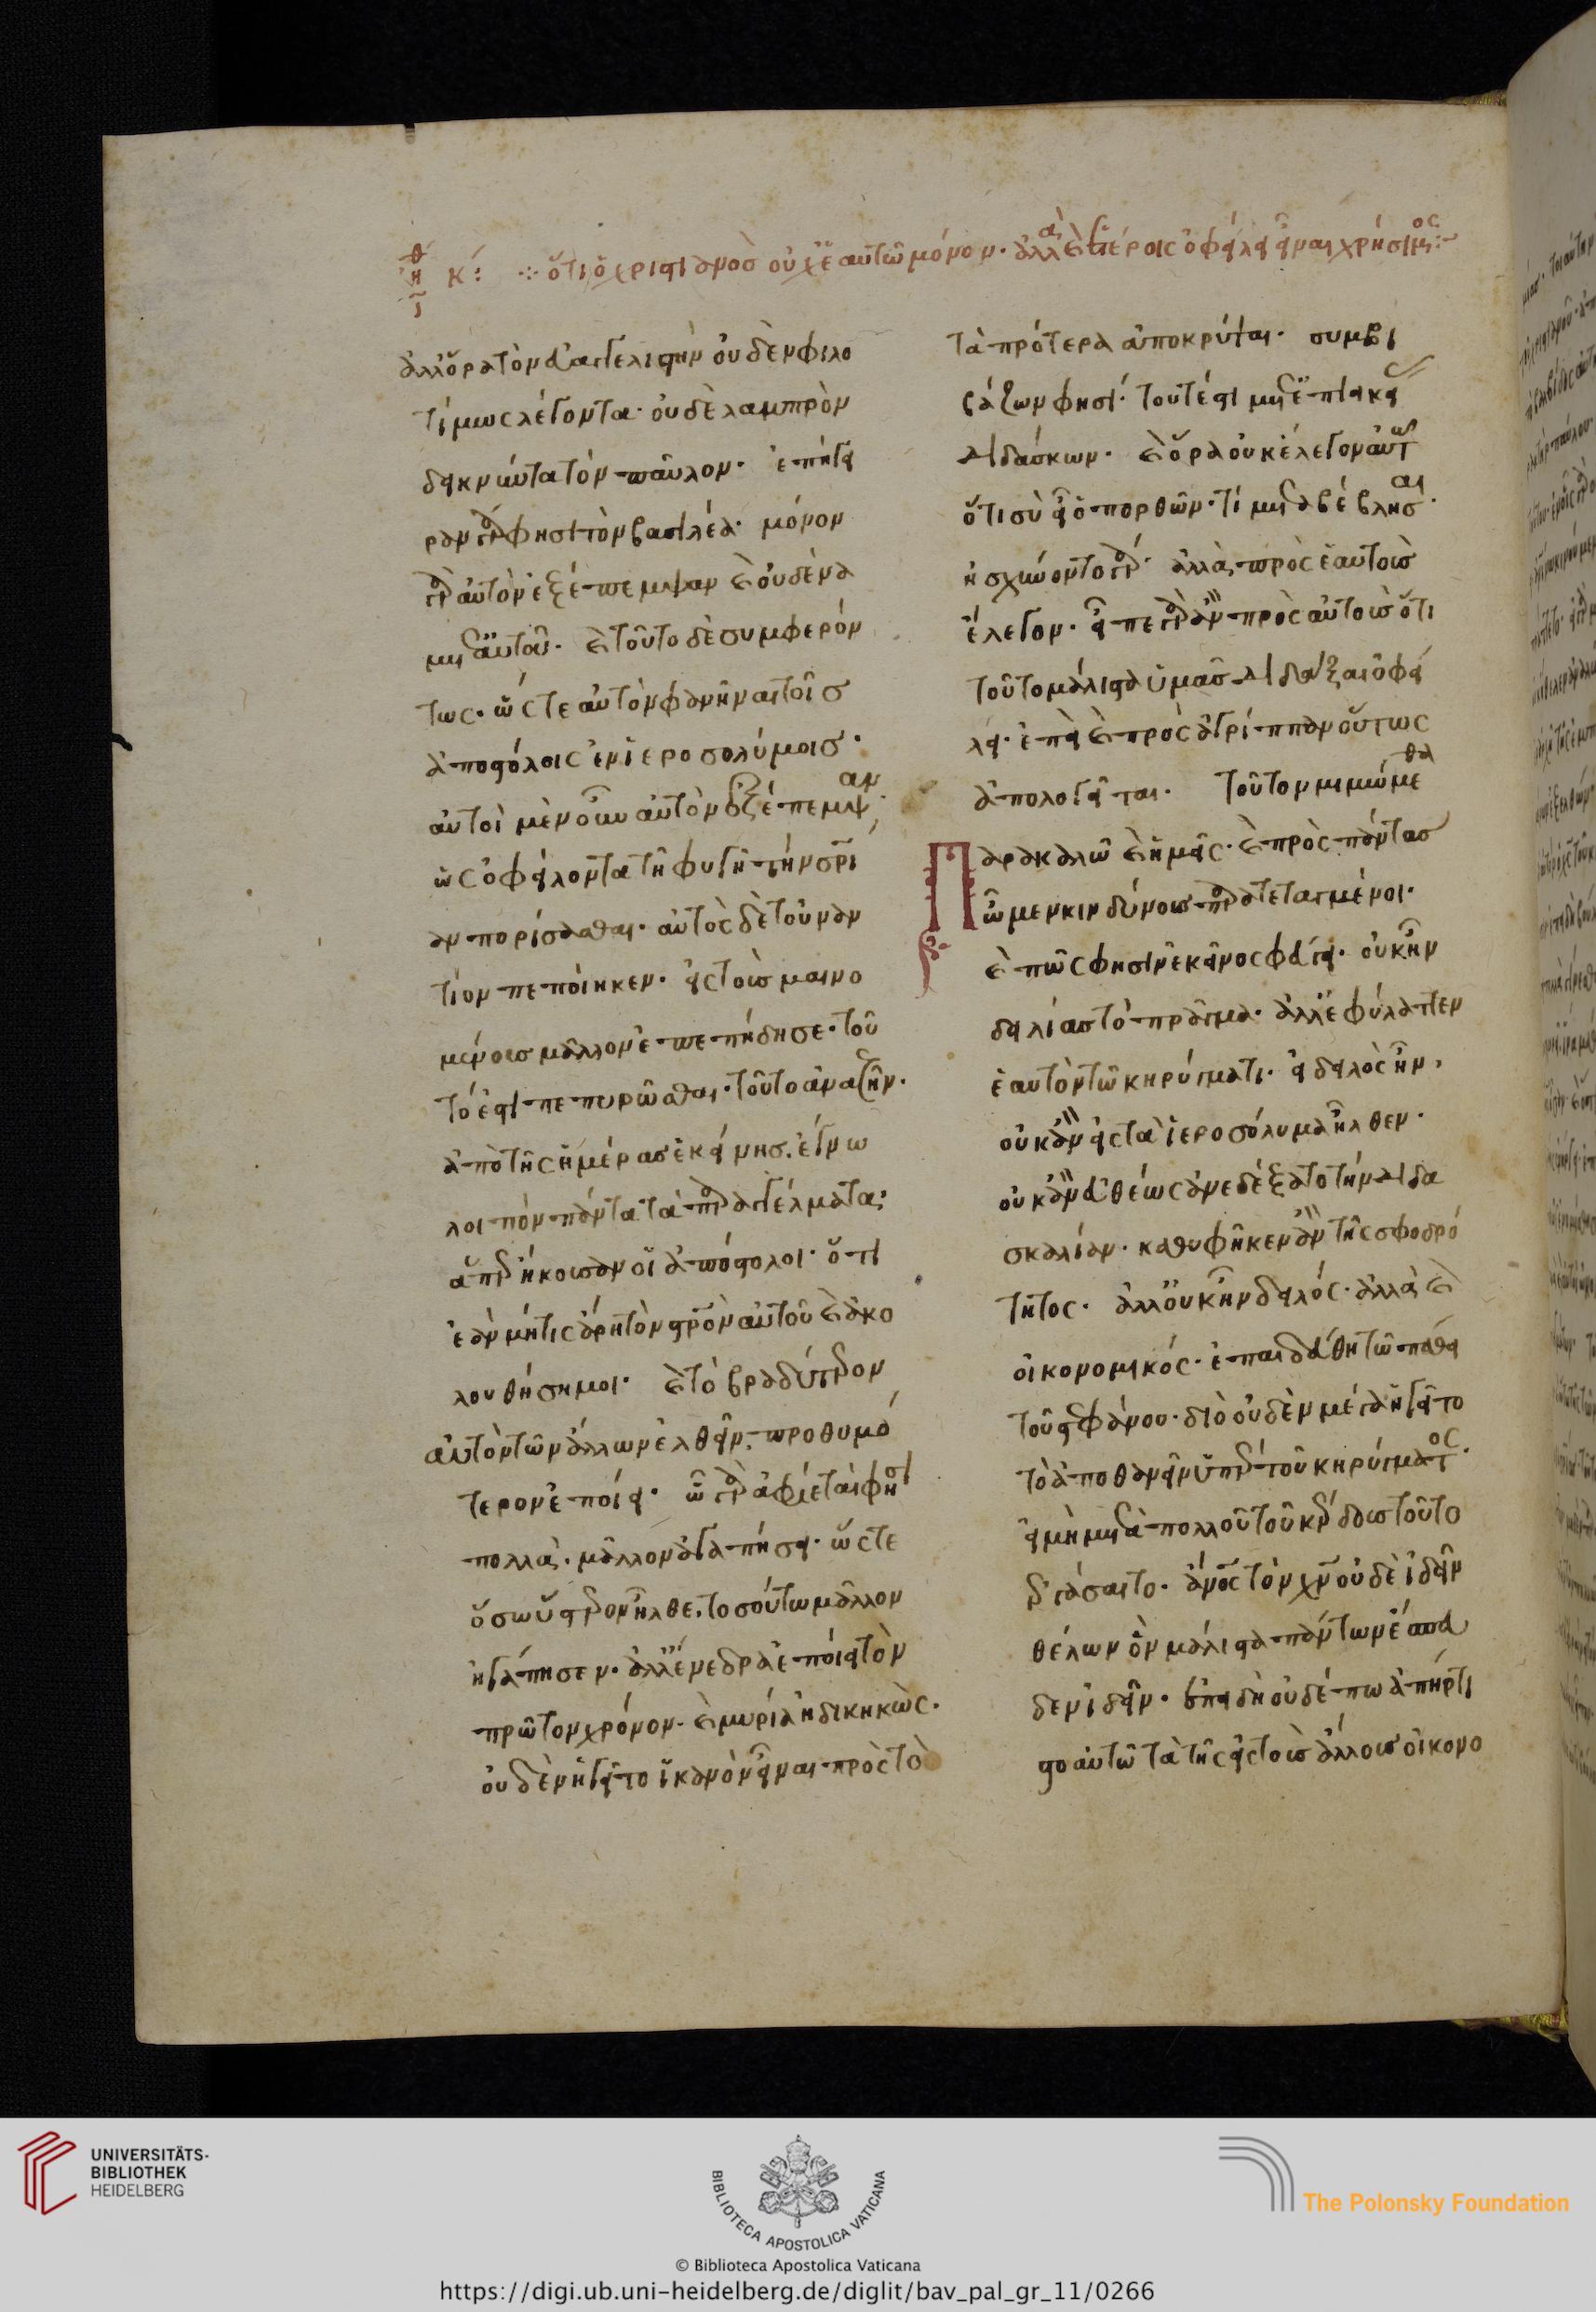 ἠθικ κʹ: ὅτι ὁ χριστιανὸς οὐχ' ἑαυτῶ μόνον· ἀλλὰ καὶ ἑτέροις ὀφείλει εἶναι χρήσιμος:
ἀλλ' ὅρα τὸν εὐαγγελιστὴν οὐδὲν φιλο
τίμως λέγοντα· οὐδὲ λαμπρὸν
δεικνύντα τὸν παῦλον· ἐπήγει
ραν γὰρ φησὶ τὸν βασιλέα· μόνον
γὰρ αὐτὸν ἐξέπεμψαν καὶ οὐδένα
μετ' αὐτοῦ· καὶ τοῦτο δὲ συμφερόν
τως· ὥστε αὐτὸν φανῆναι τοῖς
ἀποστόλοις ἐν ἱεροσολύμοις·
αὐτοὶ μὲν οὖν αὐτὸν ἐξέπεμψαν·
ὡς ὀφείλοντα τῆ φυγῆ τὴν σρι
αν πορίσασθαι· αὐτὸς δὲ τοὐναν
τίον πεποίηκεν· εἰς τοὺς μαινο
μένους μᾶλλον ἐπεπήδησε· τοῦ
τό ἐστι πεπυρῶσθαι· τοῦτο ἀναζεῖν·
ἀπὸ τῆς ἡμέρας ἐκείνης· ἔγνω
λοιπὸν πάντα τὰ παραγγέλματα·
ἅπερ ἤκουσαν οἱ ἀπόστολοι· ὅτι
ἐὰν μή τις ἄρη τὸν στρὸν αὐτοῦ καὶ ἀκο
λουθήση μοι· καὶ τὸ βραδύτερον
αὐτὸν τῶν ἄλλων ἐλθεῖν· προθυμό
τερον ἐποίει· ὧ γὰρ ἀφίεται φησὶ
πολλὰ· μᾶλλον ἀγαπήσει· ὥστε
ὅσω ὕστερον ἦλθε· τοσούτω μᾶλλον
ἠγάπησεν· ἀλλ' ἐνέδρα ἐποίει τὸν
πρῶτον χρόνον· καὶ μυρία ἠδικηκὼς·
οὐδὲν ἡγεῖτο ἱκανὸν εἶναι πρὸς τὸ
τὰ πρότερα ἀποκρύψαι· συμβι
βάζων φησί· τουτέστι μετ' ἐπιεικεί
διδάσκων· καὶ ὅρα οὐκ ἔλεγον αὐτῶ
ὅτι σὺ εἶ ὁ πορθῶν· τί μεταβέβλησαι·
ἠσχύνοντο γὰρ· ἀλλὰ πρὸς ἑαυτοὺς
ἔλεγον· εἶπε γὰρ ἂν πρὸς αὐτοὺς ὅτι
τοῦτο μάλιστα ὑμᾶς διδάξαι ὀφεί
λει· ἐπεὶ καὶ πρὸς ἀγρίππαν οὕτως
ἀπολογεῖται· τοῦτον μιμώμεθα
Παρακαλῶ καὶ ἡμεῖς· καὶ πρὸς πάντας
ὦμεν κινδύνους παρατεταγμένοι·
καὶ πῶς φησὶν ἐκεῖνος φεύγει· οὐκ ἦν
δειλίας τὸ πρᾶγμα· ἀλλ' ἐφύλαττεν
ἑαυτὸν τῶ κηρύγματι· εἰ δειλὸς ἦν·
οὐκ ἂν εἰς τὰ ἱεροσόλυμα ἦλθεν·
οὐκ ἂν εὐθέως ἀνεδέξατο τὴν διδα
σκαλίαν· καθυφῆκεν ἂν τῆς σφοδρό
τητος· ἀλλ' οὐκ ἦν δειλός· ἀλλὰ καὶ
οἰκονομικός· ἐπαιδεύθη τῶ πάθει
τοῦ στεφάνου· διὸ οὐδὲν μέγα ἡγεῖτο
τὸ ἀποθανεῖν ὑπὲρ τοῦ κηρύγματος·
εἰ μὴ μετὰ πολλοῦ τοῦ κέρδους τοῦτο
ἐργάσαιτο· ἄνος τὸν χν οὐδὲ ἰδεῖν
θέλων ὃν μάλιστα πάντων ἔσπευ
δεν ἰδεῖν· ἐπειδὴ οὐδέπω ἀπήρτι
στο αὐτῶ τὰ τῆς εἰς τοὺς ἄλλους οἰκονο
UNIVERSITÄTS-
BIBLIOTHEK
HEIDELBERG
BIBLIOTECA APOSTOLICA VATICANA
The Polonsky Foundation
© Biblioteca Apostolica Vaticana
https://digi.ub.uni-heidelberg.de/diglit/bav_pal_gr_11/0266